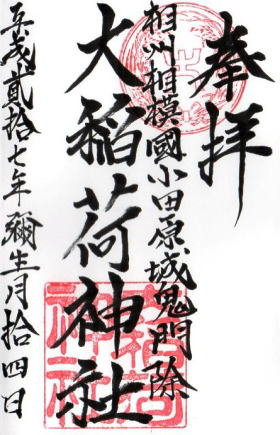 奉拝
相州相模國小田原城鬼門除
大稲荷神社
平成貳拾七年彌生月拾四日